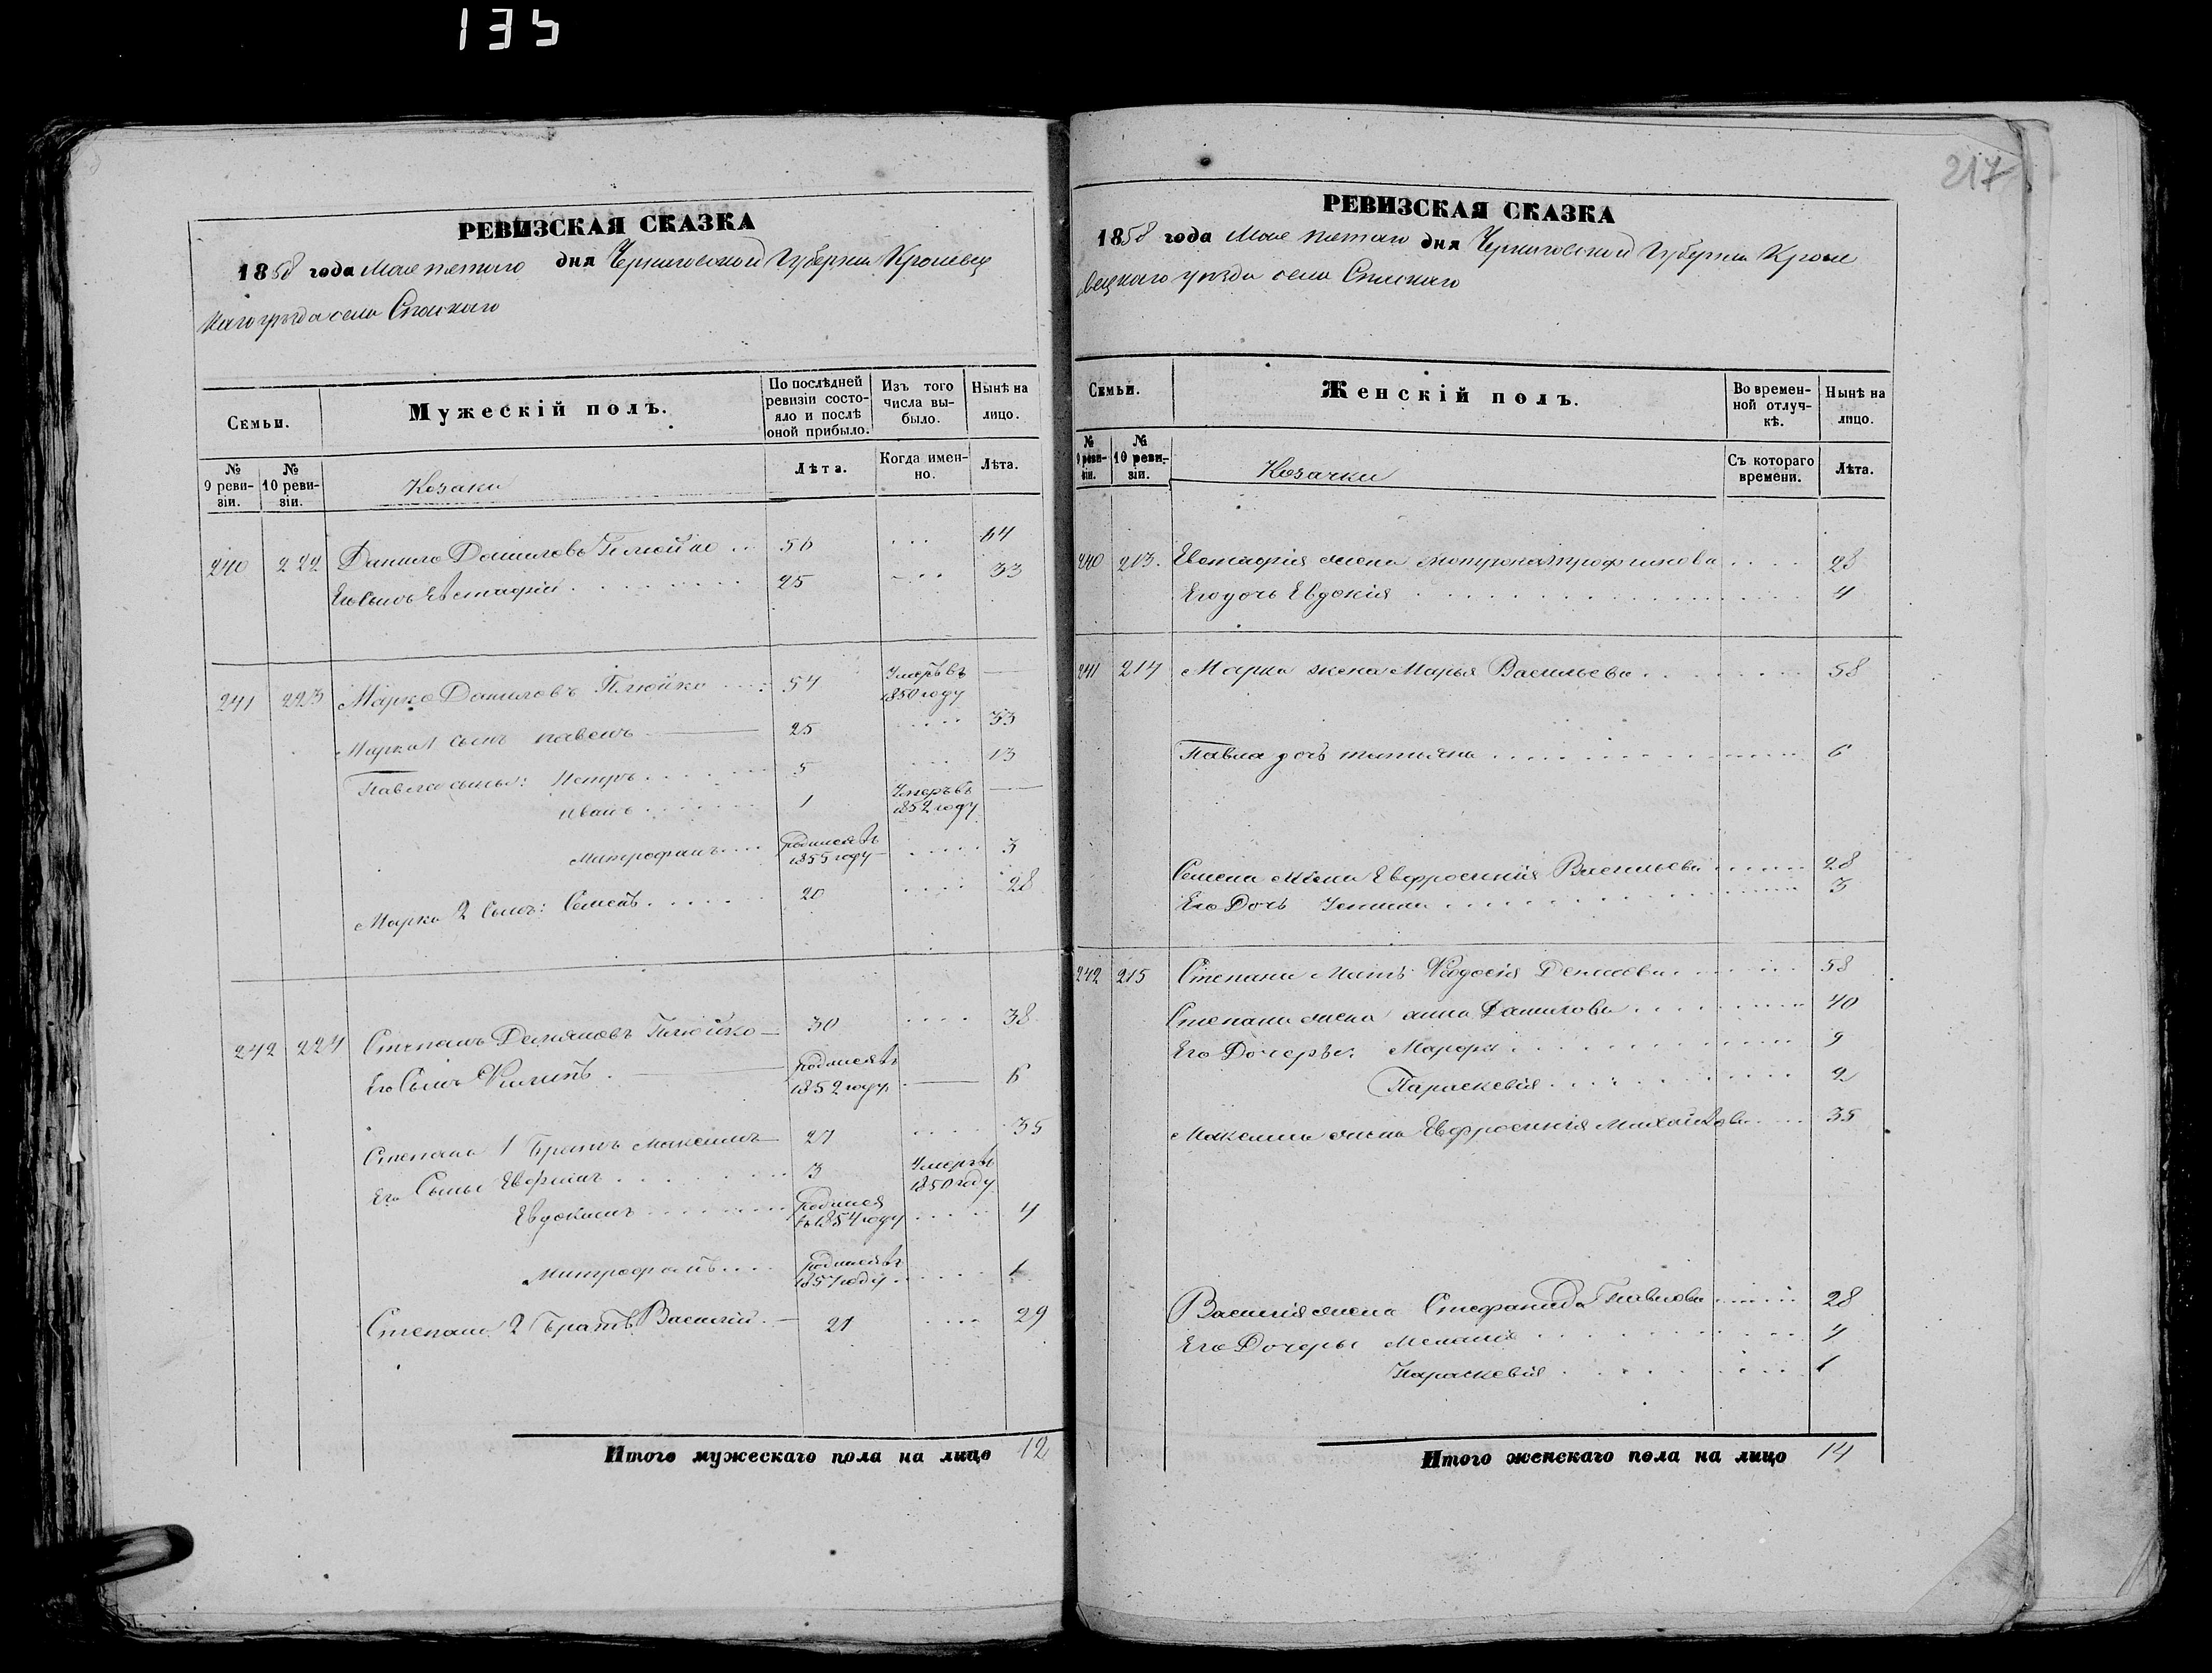 135
РЕВИЗСКАЯ СКАЗКА
1858 года Мая пятого дня Черниговской Губернии Кролевец
каго уезда села Спаскаго
Семьи.
Мужескій полъ.
По послѣдней ревизіи состояло и послѣ оной прибыло.
Изъ того числа выбыло.
Нынѣ на лицо.
№ 9 ревизіи.
№ 10 ревизіи.
Козаки
Лѣта.
Когда именно.
Лѣта.
240 222 Данило Даниловъ Плюйко .. 56 ... 64
Его сынъ Евстафій . . . . 25 ... 33
241 223 Марко Даниловъ Плюйко 54 Умеръ въ 1850 году —
Марка 1 сынъ Павелъ — 25 .... 33
Павла сыны: Петръ . . . . 5 ... 13
Иванъ . . . . 1 Умеръ въ 1852 году —
Митрофанъ .... родился въ 1855 году ..... 3
Марка 2 сынъ: Семенъ . . . . 20 .... 28
242 224 Степанъ Демьяновъ Плюйко — 30 .... 38
Его Сынъ Филипъ . — родился въ 1852 году — 6
Степана 1 Братъ Максимъ 27 .... 35
Его Сыны Ефимъ . . . . 3 Умеръ въ 1850 году
Евдокимъ . . . . родился въ 1854 году ..... 4
Митрофанъ .... родился въ 1857 году ..... 1
Степана 2 Братъ Василій . — 21 .... 29
Итого мужескаго пола на лицо 12
217
РЕВИЗСКАЯ СКАЗКА
1858 года Мая пятого дня Черниговской Губернии Кроле
вецкаго уезда села Спаскаго
Семьи.
Женскій полъ.
Во временной отлучкѣ.
Нынѣ на лицо.
№ 9 ревизіи.
№ 10 ревизіи.
Козачки
Съ котораго времени.
Лѣта.
240 213. Евстафія жена Трофимова .... 28
Его дочь Евдокія . . . . 4
241 214 Марка жена Марья Васильева . . . . 58
Павла дочь Татьяна . . . . 6
Семена жена Евфросинія Васильева ..... 28
Его Дочь Устинья . . . . 3
242 215 Степана Мать Феодосія . . . . 58
Степана жена Анна Данилова . . . . 40
Его Дочерьи: . . . . 9
Параскевія . . . . 2
Максима жена Евфросинія Михайлова .... 35
Василія жена Стефанида Павлова ..... 28
Его Дочеры Меланія . . . . 4
Параскевія . . . . 1
Итого женскаго пола на лицо 14